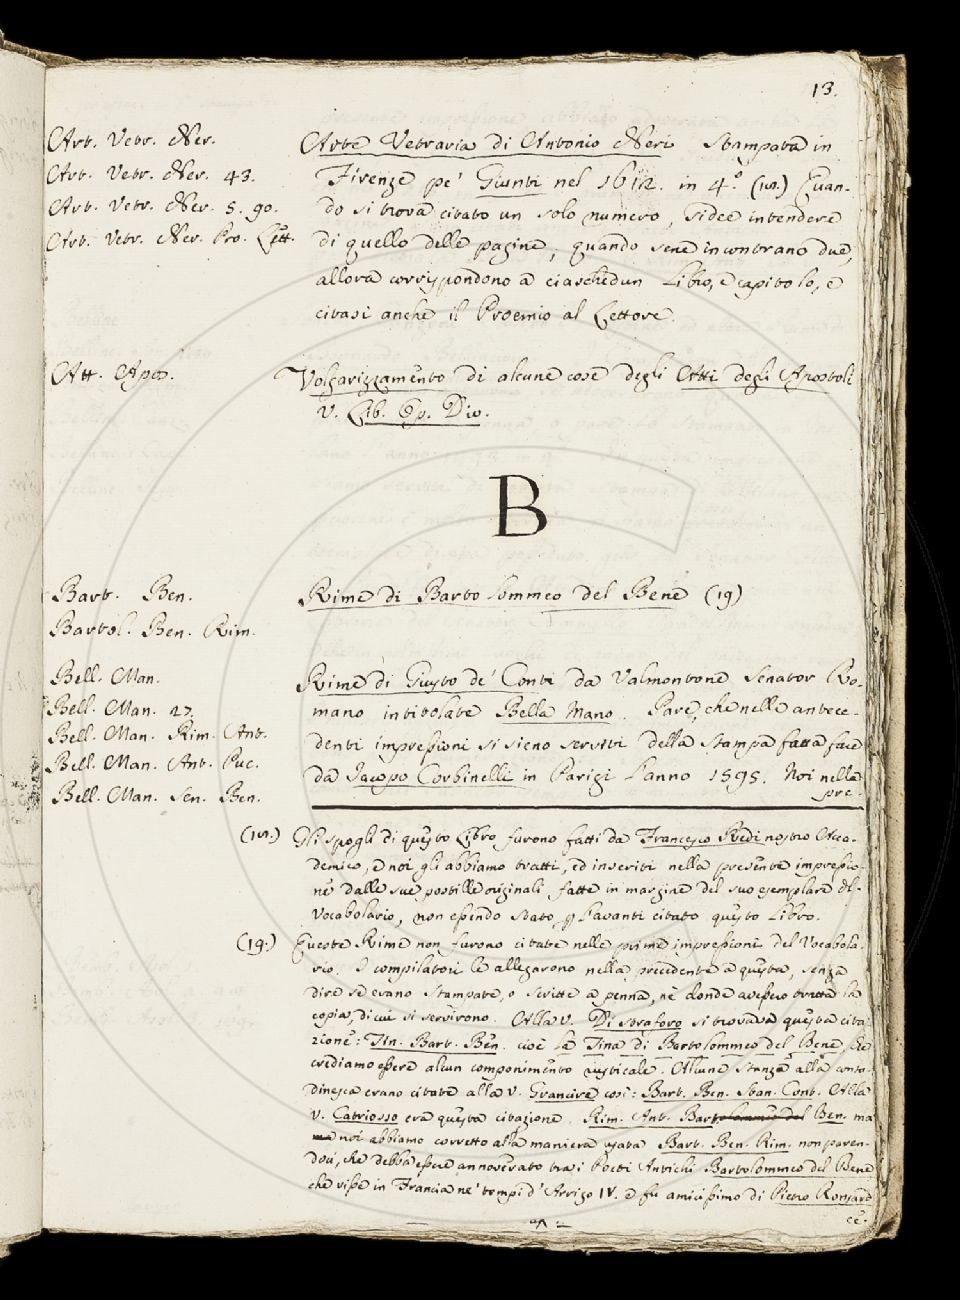 13.
Art. Vetr. Ner.
Art. Vetr. Ner. 43.
Art. Vetr. Ner. 5. 90.
Art. Vetr. Ner. Pro. Lett.
Arte Vetraria di Antonio Neri Stampata in
Firenze pe' Giunti nel 1612. in 4.° (18.) Quan-
do si trova citato un solo numero, si dee intendere
di quello delle pagine, quando sene incontrano due,
allora corrispondono a ciaschedun Libro, e capitolo, e
citasi anche il Proemio al Lettore.
Att. Apos.
Volgarizzamento di alcune cose degli Atti degli Apostoli
V. Lib. Op. Div.
B
Bart. Ben.
Bartol. Ben. Rim.
Rime di Bartolommeo del Bene (19)
Bell. Man.
Bell. Man. 27.
Bell. Man. Rim. Ant.
Bell. Man. Ant. Puc.
Bell. Man. Sen. Ben.
Rime di Giusto de' Conti da Valmontone Senator Ro-
mano intitolate Bella Mano. Pare, che nelle antece-
denti impressioni si sieno serviti della stampa fatta fare
da Jacopo Corbinelli in Parigi l'anno 1595. Noi nella
pre-
(18.) Gli spogli di questo Libro furono fatti da Francesco Redi nostro Acca-
demico, e noi gli abbiamo tratti, ed inseriti nella presente impressio-
ne dalle sue postille originali fatte in margine del suo esemplare del
Vocabolario, non essendo stato p l'avanti citato questo Libro.
(19.) Queste Rime non furono citate nelle prime impressioni del Vocabola-
rio. I compilatori le allegarono nella precedente a questa, senza
dire se erano stampate, o scritte a penna, nè donde avessero tratta la
copia, di cui si servirono. Alla V. Di straforo si trovava questa cita-
zione: Tin. Bart. Ben. cioè la Tina di Bartolommeo del Bene, che
crediamo essere alcun componimento rusticale. Alcune Stanze alla conta-
dinesca erano citate alla V. Grancire così: Bart. Ben. Stan. Cont. Alla
V. Catriosso era questa citazione. Rim. Ant. Bartolommeo del Ben. ma
ma noi abbiamo corretto alla maniera usata Bart. Ben. Rim. non paren-
doci, che debba essere annoverato tra i Poeti Antichi Bartolommeo del Bene
che visse in Francia ne' tempi d'Arrigo IV. e fu amicissimo di Pietro Ronsard
ec.